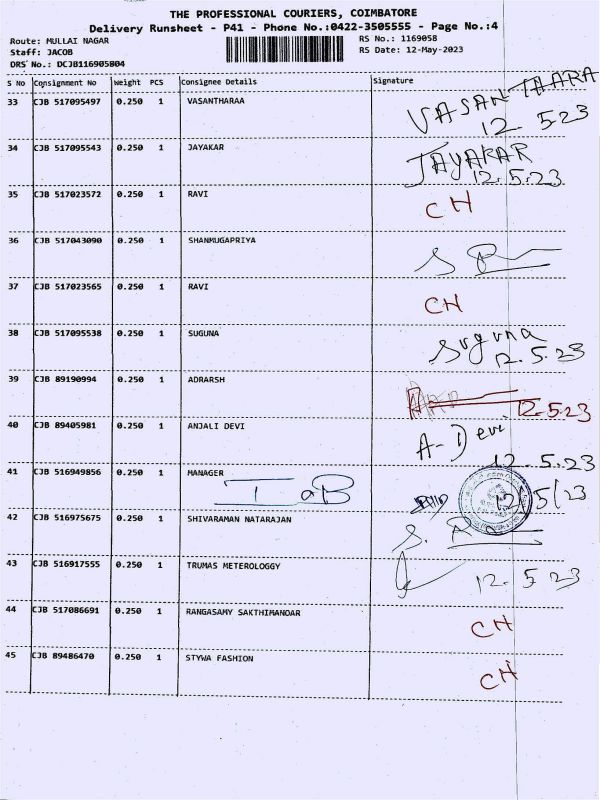 THE PROFESSIONAL COURIERS, COIMBATORE
Delivery Runsheet - P41 - Phone No.:0422-3505555 - Page No.:4
Route: MULLAI NAGAR RS No.: 1169058
Staff: JACOB RS Date: 12-May-2023
DRS No.: DCJB116905804
S No Consignment No Weight PCS Consignee Details Signature
33 CJB 517095497 0.250 1 VASANTHARAA VASANTHARA
12. 5 23
34 CJB 517095543 0.250 1 JAYAKAR JAYAKAR
12.5.23
35 CJB 517023572 0.250 1 RAVI CH
36 CJB 517043090 0.250 1 SHANMUGAPRIYA
37 CJB 517023565 0.250 1 RAVI CH
38 CJB 517095538 0.250 1 SUGUNA Suguna
12.5.23
39 CJB 89190994 0.250 1 ADRARSH 12.5.23
40 CJB 89405981 0.250 1 ANJALI DEVI A-Devi
12.5.23
41 CJB 516949856 0.250 1 MANAGER IaB 12/5/23
42 CJB 516975675 0.250 1 SHIVARAMAN NATARAJAN
43 CJB 516917555 0.250 1 TRUMAS METEROLOGGY 12. 5 23
44 CJB 517086691 0.250 1 RANGASAMY SAKTHIMANOAR CH
45 CJB 89486470 0.250 1 STYWA FASHION CH